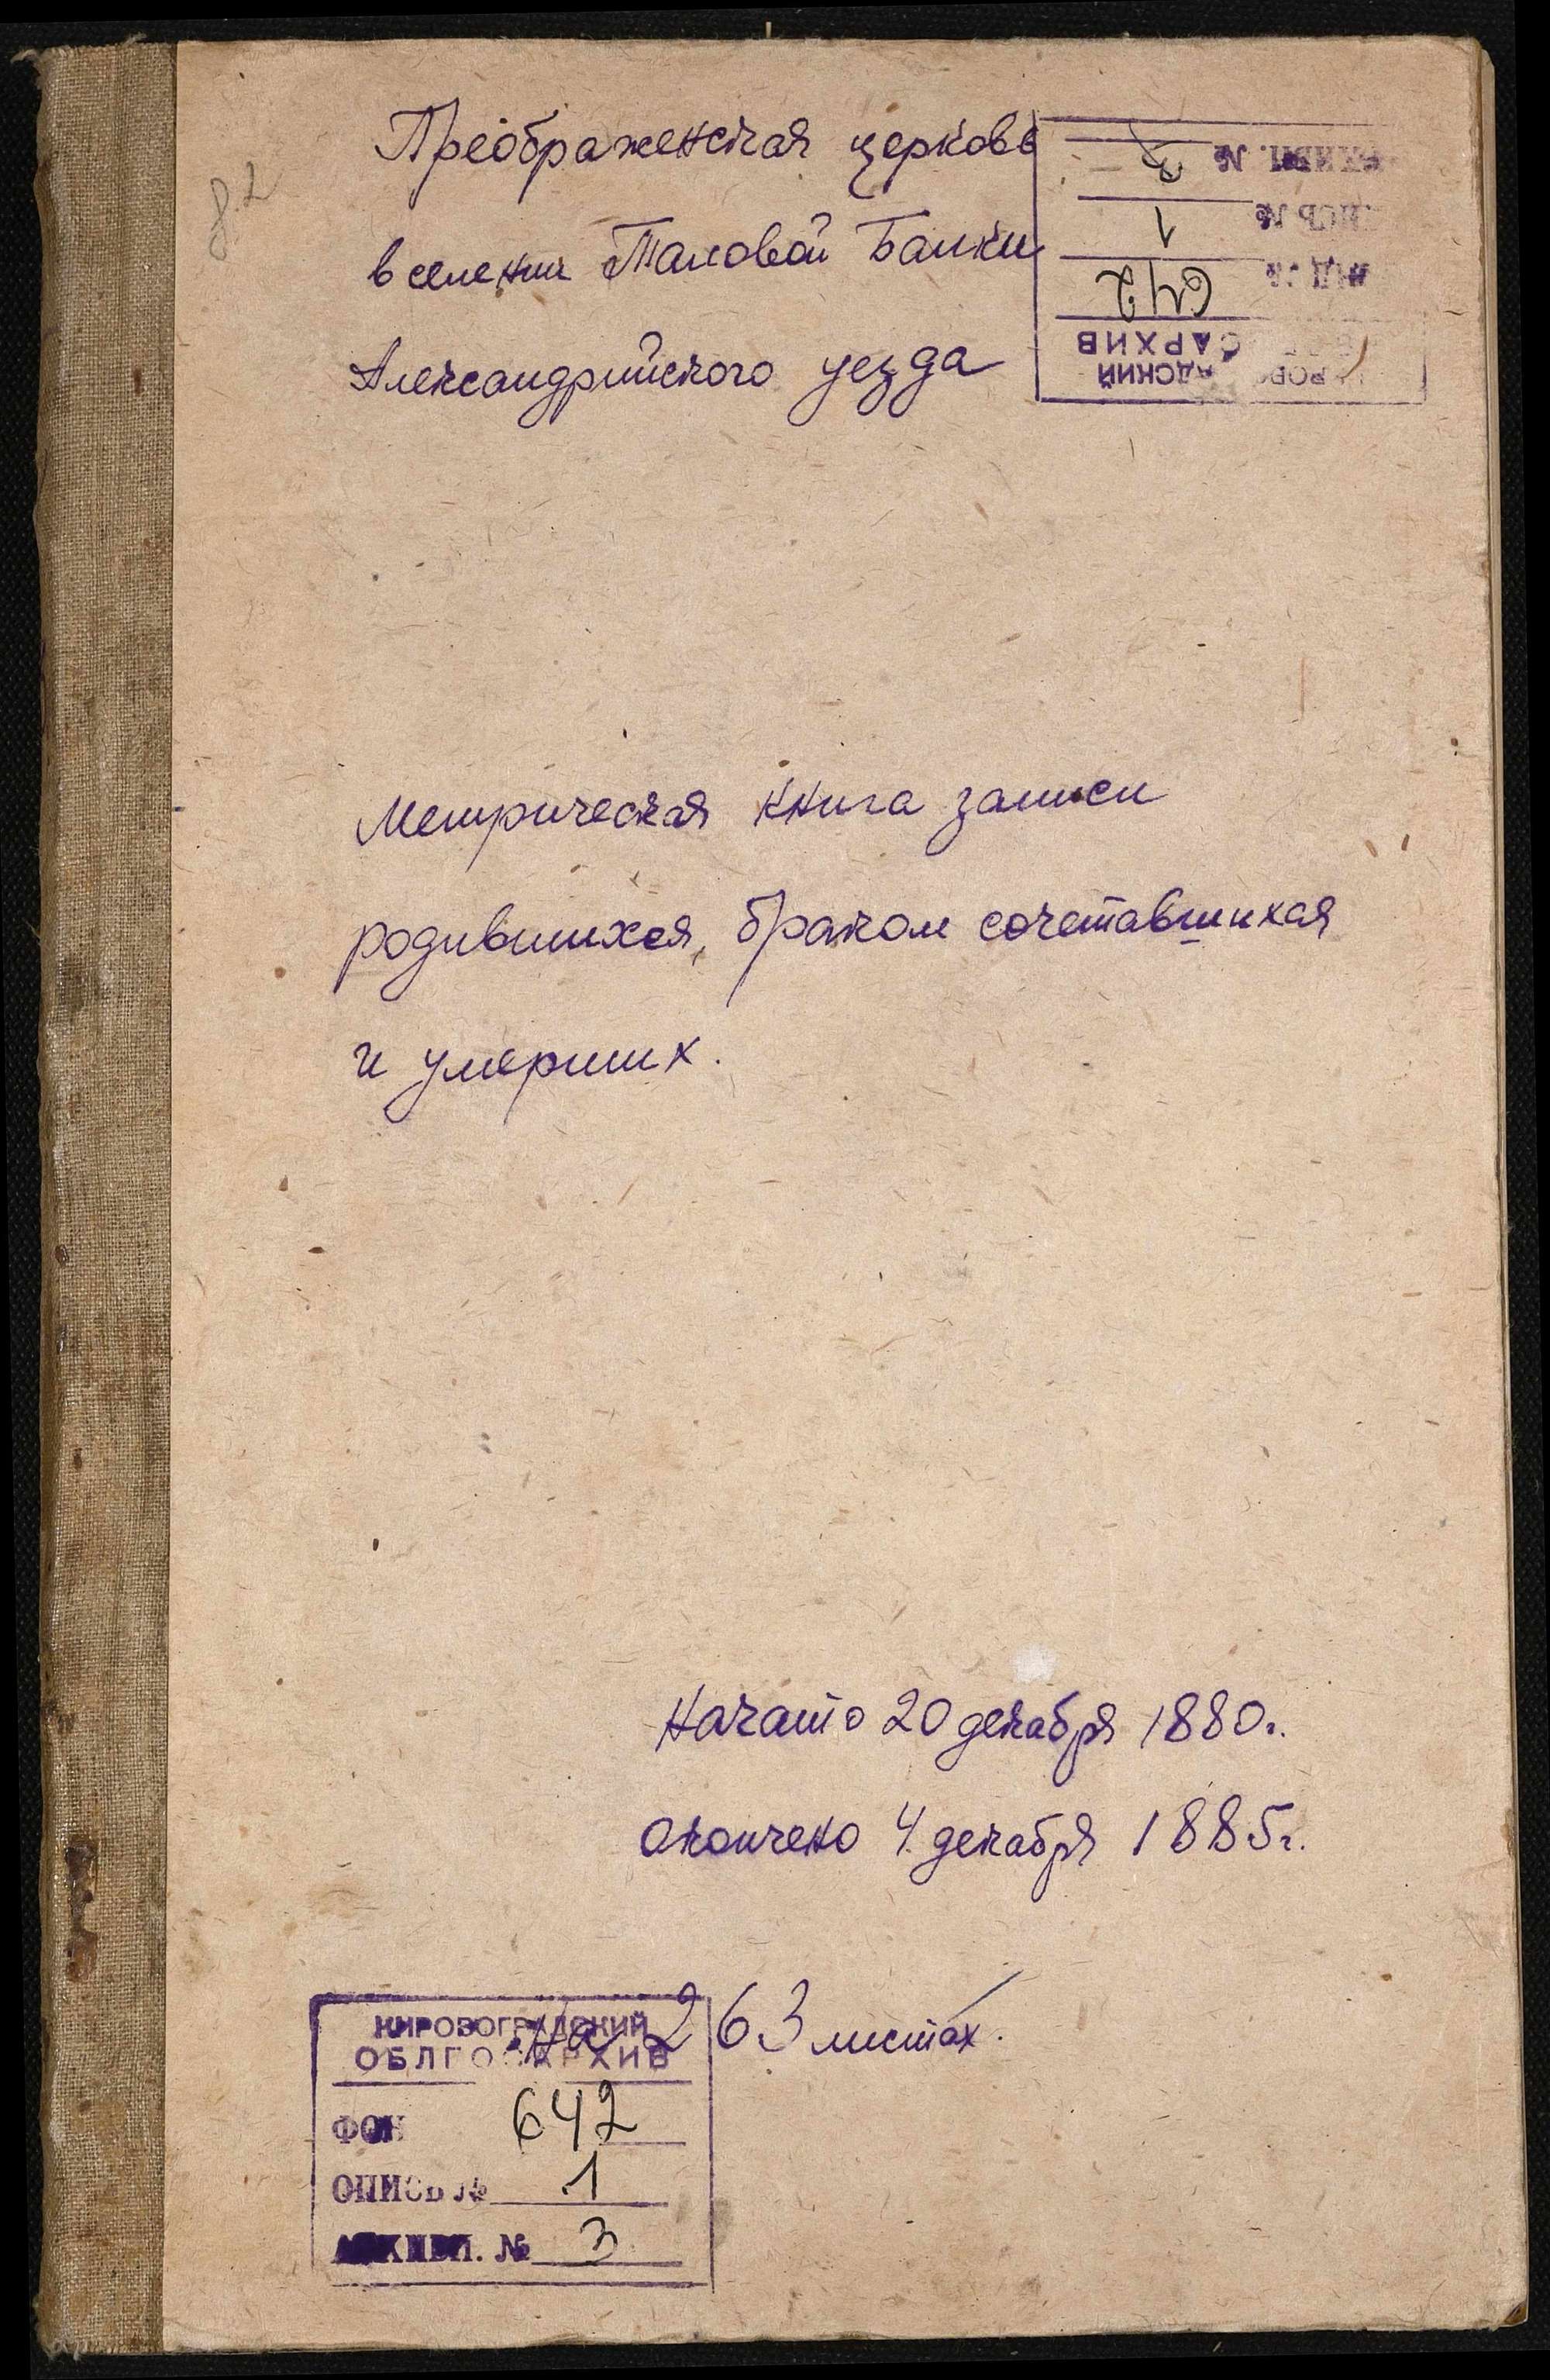 Преображенская церковь
в селении Таловой Балки
Александрийского уезда
АРХИВН. № 3
ОПИСЬ № 1
ФОНД № 642
Метрическая книга записи
родившихся, браком сочетавшихся
и умерших.
Начато 20 декабря 1880г.
Окончено 4 декабря 1885г.
На 263 листах.
КИРОВОГРАДСКИЙ
ОБЛГОСАРХИВ
ФОН 642
ОПИСЬ № 1
АРХИВН. № 3